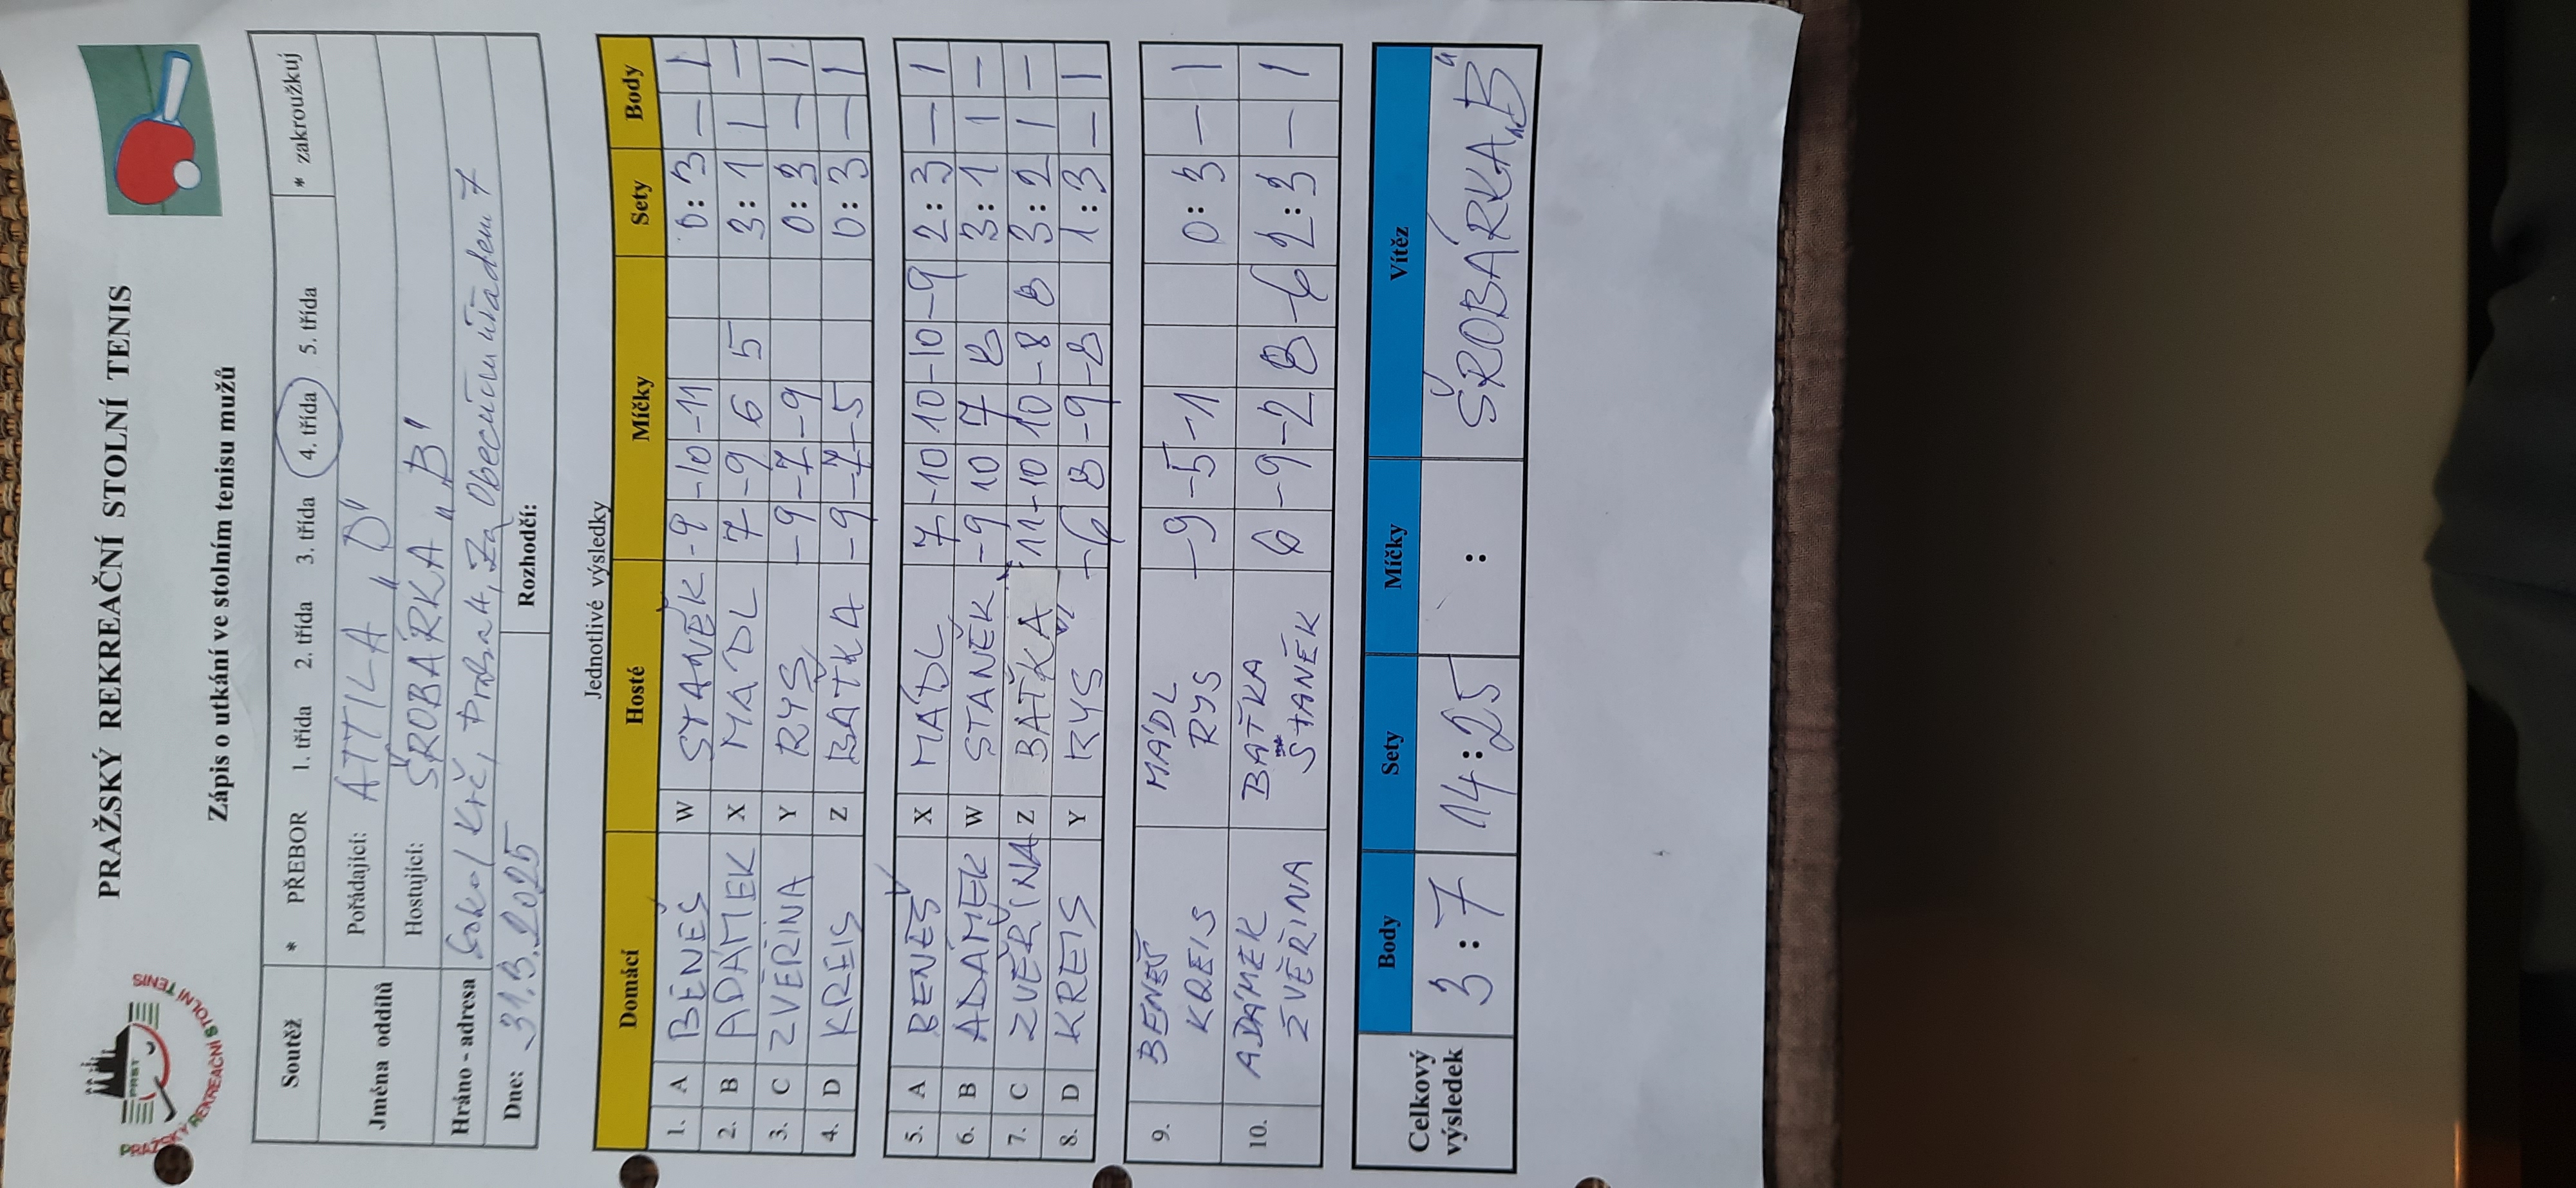 PRAŽSKÝ REKREAČNÍ STOLNÍ TENIS
PRAŽSKÝ REKREAČNÍ STOLNÍ TENIS
PRST
Zápis o utkání ve stolním tenisu mužů
Soutěž * PŘEBOR 1. třída 2. třída 3. třída 4. třída 5. třída * zakroužkuj
Jména oddílů Pořádající: ATTILA „D"
Hostující: ŠROBÁRKA „B"
Hráno - adresa Sokol Krč, Praha 4, Za Obecním úřadem 7
Dne: 31.3.2025 Rozhodčí:
Jednotlivé výsledky
Domácí Hosté Míčky Sety Body
1. A BENEŠ W STANĚK -9 -10 -11 0:3 — 1
2. B ADÁMEK X MÁDL 7 -9 6 5 3:1 1 —
3. C ZVĚŘINA Y RYS -9 -7 -9 0:3 — 1
4. D KREIS Z BAŤKA -9 -7 -5 0:3 — 1
5. A BENEŠ X MÁDL 7 -10 10 -10 -9 2:3 — 1
6. B ADÁMEK W STANĚK -9 10 7 8 3:1 1 —
7. C ZVĚŘINA Z BAŤKA 11 -10 10 -8 8 3:2 1 —
8. D KREIS Y RYS -6 8 -9 -8 1:3 — 1
9. BENEŠ MÁDL -9 -5 -1 0:3 — 1
KREIS RYS
10. ADÁMEK BAŤKA 6 -9 -2 8 -6 2:3 — 1
ZVĚŘINA STANĚK
Celkový výsledek Body Sety Míčky Vítěz
3:7 14:25 : ŠROBÁRKA „B"